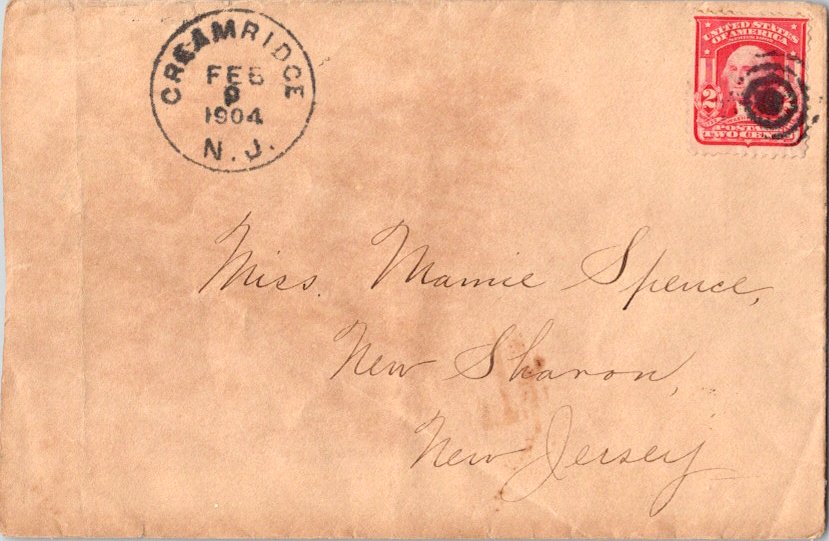 CREAMRIDGE
FEB
9
1904
N. J.
UNITED STATES
OF AMERICA
2
POSTAGE
TWO CENTS
Miss. Mamie Spence,
New Sharon,
New Jersey